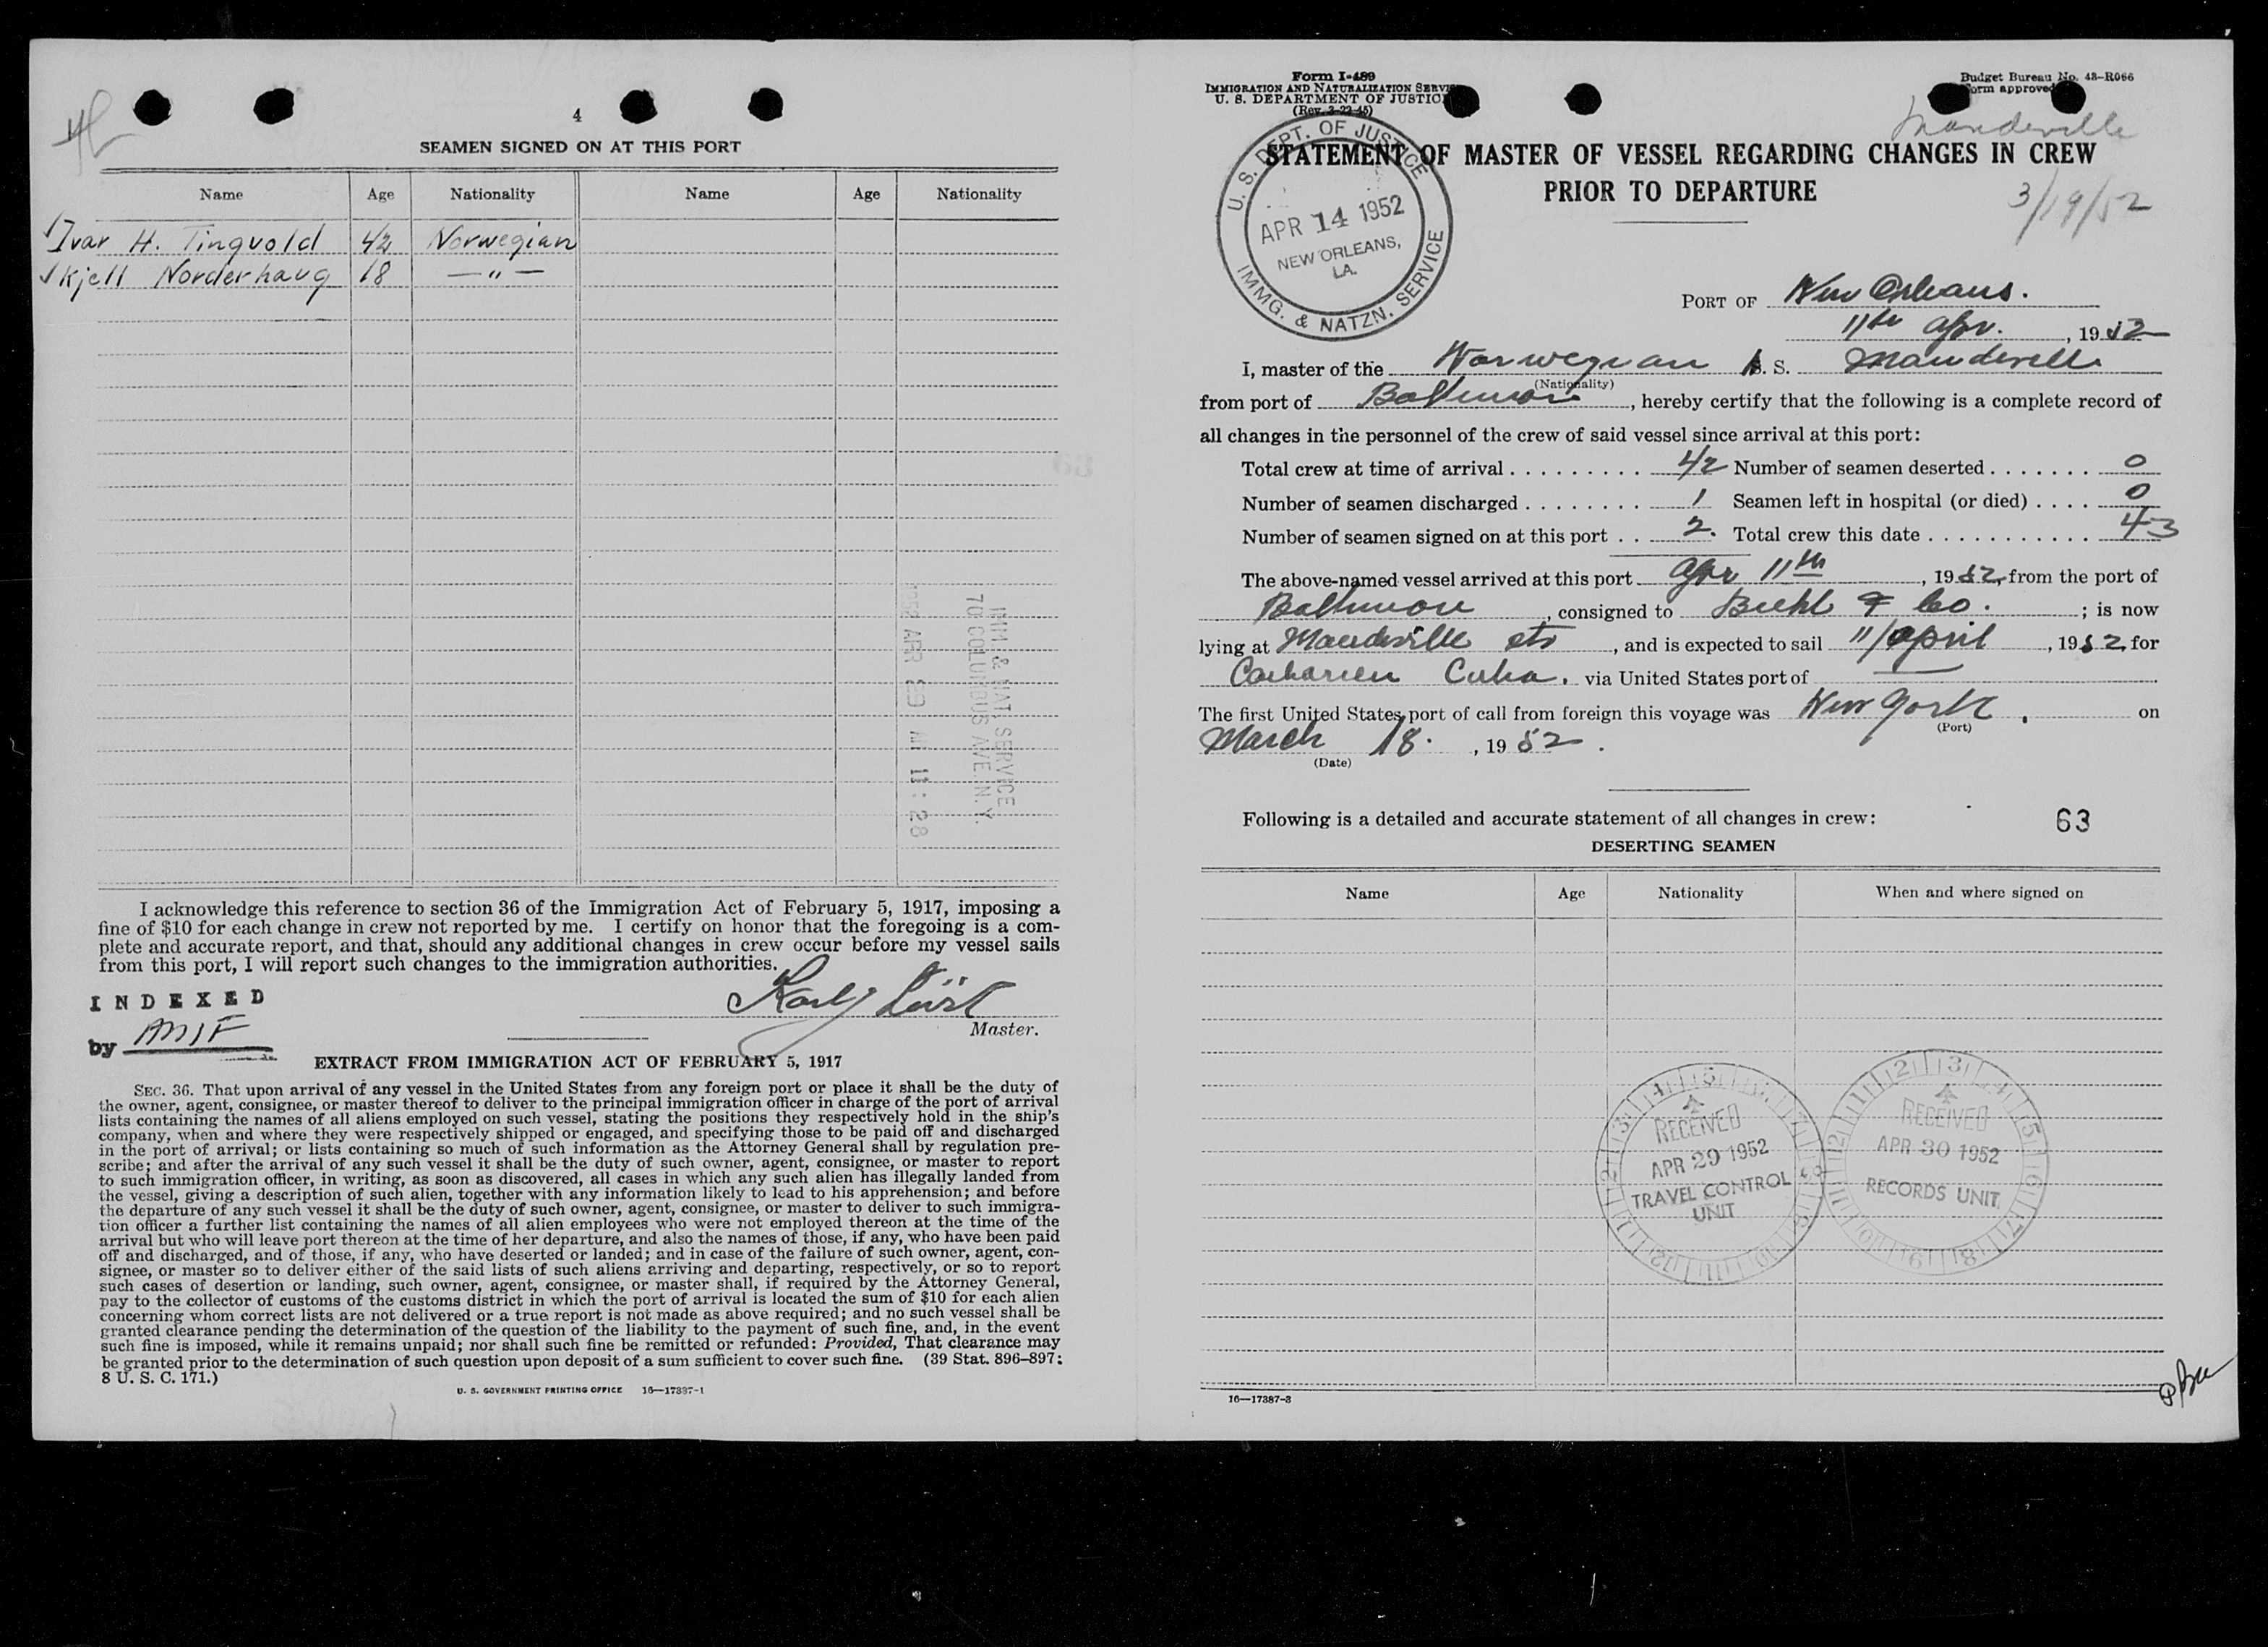 4
SEAMEN SIGNED ON AT THIS PORT
Name Age Nationality Name Age Nationality
Ivar H. Tingvold 42 Norwegian
Kjell Norderhaug 18 — " —
IMM. & NAT. SERVICE
70 COLUMBUS AVE. N.Y.
1952 APR 29 AM 11:28
I acknowledge this reference to section 36 of the Immigration Act of February 5, 1917, imposing a
fine of $10 for each change in crew not reported by me. I certify on honor that the foregoing is a com-
plete and accurate report, and that, should any additional changes in crew occur before my vessel sails
from this port, I will report such changes to the immigration authorities.
INDEXED
by
Master.
EXTRACT FROM IMMIGRATION ACT OF FEBRUARY 5, 1917
SEC. 36. That upon arrival of any vessel in the United States from any foreign port or place it shall be the duty of
the owner, agent, consignee, or master thereof to deliver to the principal immigration officer in charge of the port of arrival
lists containing the names of all aliens employed on such vessel, stating the positions they respectively hold in the ship's
company, when and where they were respectively shipped or engaged, and specifying those to be paid off and discharged
in the port of arrival; or lists containing so much of such information as the Attorney General shall by regulation pre-
scribe; and after the arrival of any such vessel it shall be the duty of such owner, agent, consignee, or master to report
to such immigration officer, in writing, as soon as discovered, all cases in which any such alien has illegally landed from
the vessel, giving a description of such alien, together with any information likely to lead to his apprehension; and before
the departure of any such vessel it shall be the duty of such owner, agent, consignee, or master to deliver to such immigra-
tion officer a further list containing the names of all alien employees who were not employed thereon at the time of the
arrival but who will leave port thereon at the time of her departure, and also the names of those, if any, who have been paid
off and discharged, and of those, if any, who have deserted or landed; and in case of the failure of such owner, agent, con-
signee, or master so to deliver either of the said lists of such aliens arriving and departing, respectively, or so to report
such cases of desertion or landing, such owner, agent, consignee, or master shall, if required by the Attorney General,
pay to the collector of customs of the customs district in which the port of arrival is located the sum of $10 for each alien
concerning whom correct lists are not delivered or a true report is not made as above required; and no such vessel shall be
granted clearance pending the determination of the question of the liability to the payment of such fine, and, in the event
such fine is imposed, while it remains unpaid; nor shall such fine be remitted or refunded: Provided, That clearance may
be granted prior to the determination of such question upon deposit of a sum sufficient to cover such fine. (39 Stat. 896–897;
8 U. S. C. 171.)
U. S. GOVERNMENT PRINTING OFFICE 16—17387-1
Form I-489
IMMIGRATION AND NATURALIZATION SERVI
U. S. DEPARTMENT OF JUSTIC
(Rev. 3-22-45)
Budget Bureau No. 43–R066
orm approved
Mandeville
3/19/52
U. S. DEPT. OF JUSTICE
APR 14 1952
NEW ORLEANS,
LA.
IMMG. & NATZN. SERVICE
STATEMENT OF MASTER OF VESSEL REGARDING CHANGES IN CREW
PRIOR TO DEPARTURE
PORT OF New Orleans.
11th Apr. , 1952
I, master of the Norwegian S. S. Mandeville
(Nationality)
from port of Baltimore , hereby certify that the following is a complete record of
all changes in the personnel of the crew of said vessel since arrival at this port:
Total crew at time of arrival . . . . . . . . . 42 Number of seamen deserted . . . . . . . 0
Number of seamen discharged . . . . . . . . 1 Seamen left in hospital (or died) . . . . 0
Number of seamen signed on at this port . . 2. Total crew this date . . . . . . . . . . . . 43
The above-named vessel arrived at this port Apr 11th , 1952, from the port of
Baltimore , consigned to Biehl & Co. ; is now
lying at Mandeville Str , and is expected to sail 11/April , 1952, for
Caibarien Cuba. via United States port of —
The first United States port of call from foreign this voyage was New York . on
(Port)
March 18. , 1952.
(Date)
Following is a detailed and accurate statement of all changes in crew: 63
DESERTING SEAMEN
Name Age Nationality When and where signed on
RECEIVED
APR 29 1952
TRAVEL CONTROL
UNIT
RECEIVED
APR 30 1952
RECORDS UNIT
16—17387-3